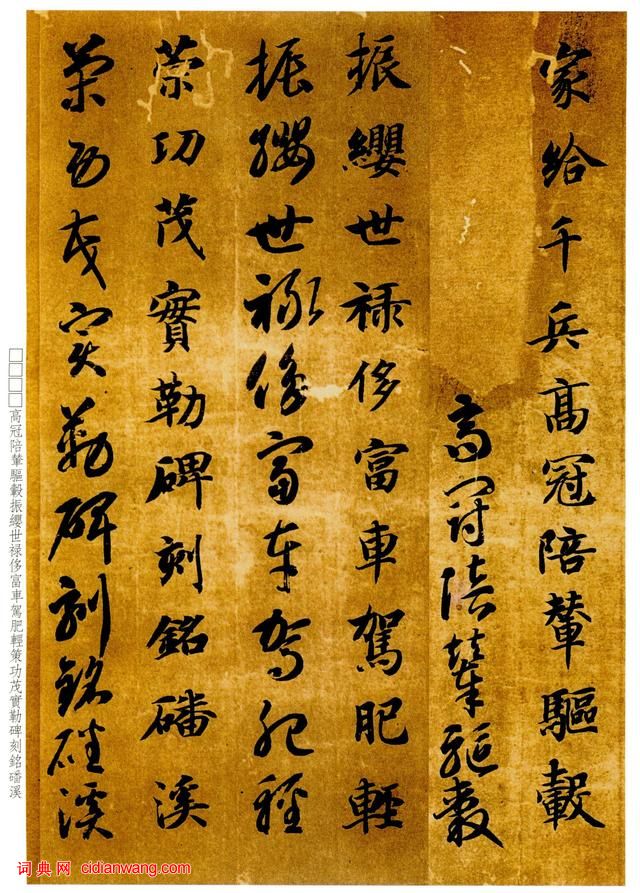 家給千兵高冠陪輦驅轂
高冠陪輦驅轂
振纓世祿侈富車駕肥輕
振纓世祿侈富車駕肥輕
策功茂實勒碑刻銘磻溪
策功茂實勒碑刻銘磻溪
□□□□高冠陪輦驅轂振纓世祿侈富車駕肥輕策功茂實勒碑刻銘磻溪
词典网 cidianwang.com